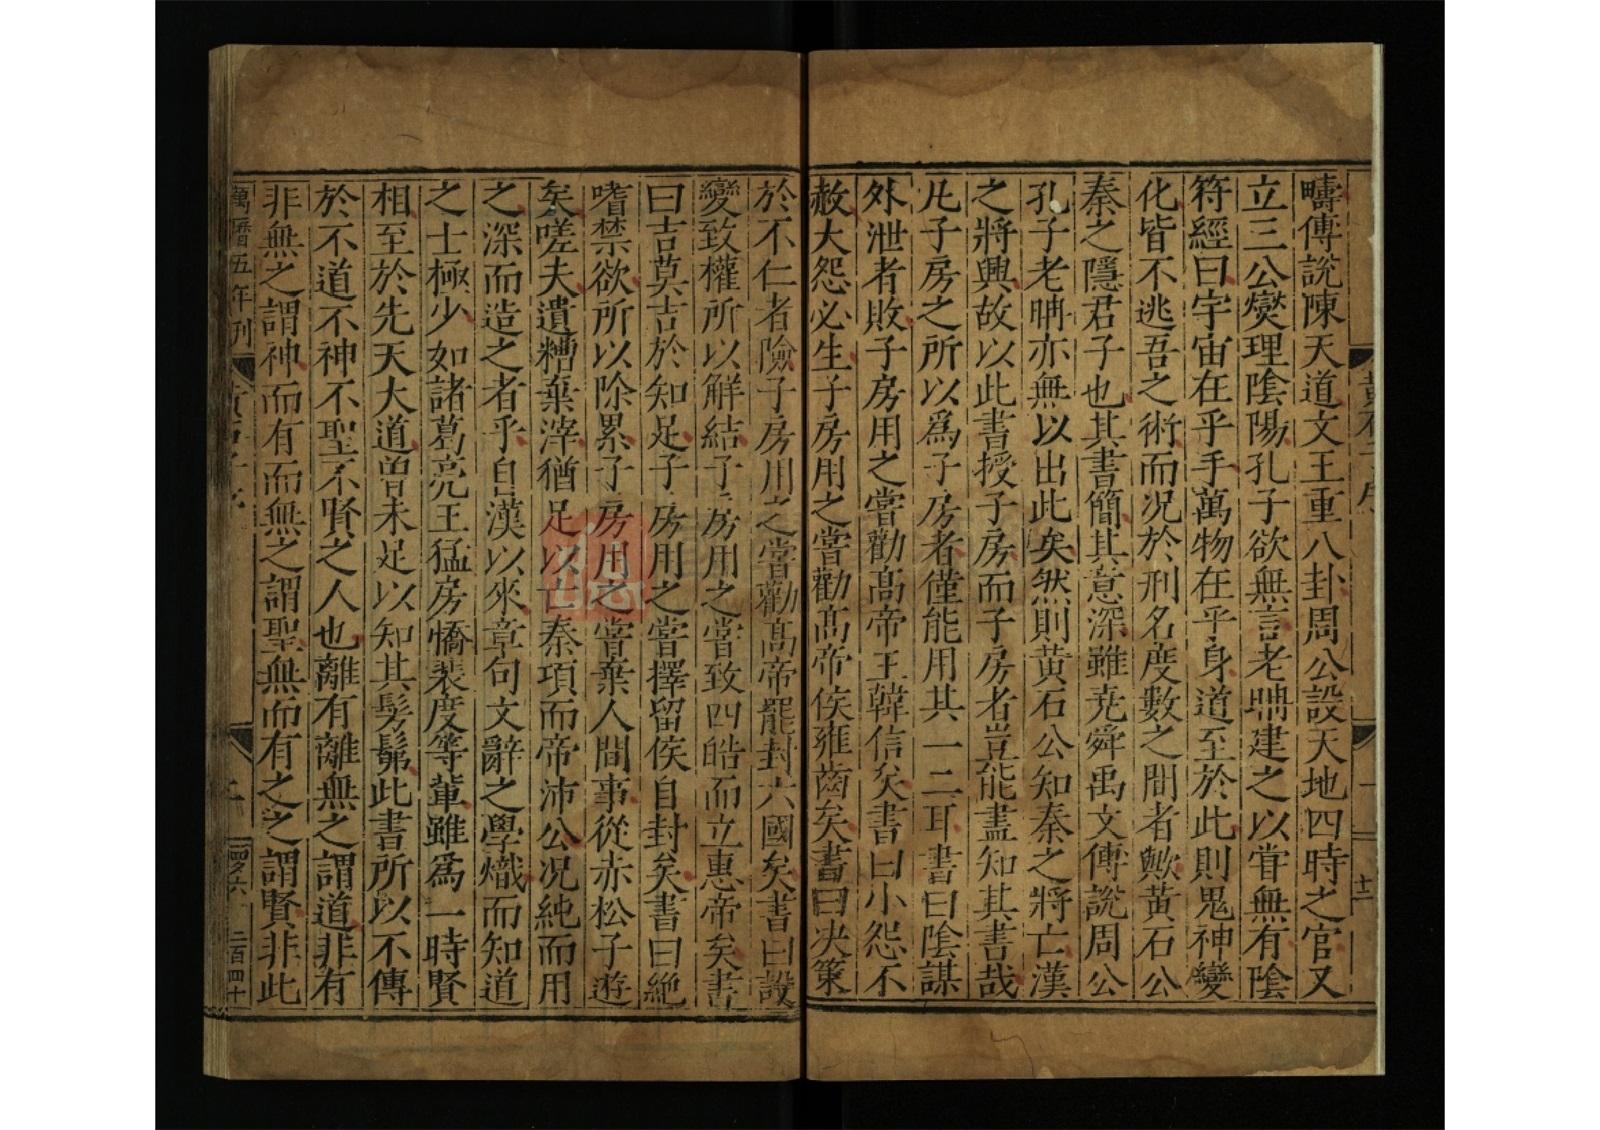 疇傳說陳天道文王重八卦周公設天地四時之官又
立三公燮理陰陽孔子欲無言老聃建之以甞無有陰
符經曰宇宙在乎手萬物在乎身道至於此則鬼神變
化皆不逃吾之術而况於刑名度數之間者歟黃石公
秦之隱君子也其書簡其意深雖尭舜禹文傅說周公
孔子老聃亦無以出此矣然則黃石公知秦之將亡漢
之將興故以此書授子房而子房者豈能盡知其書哉
凡子房之所以爲子房者僅能用其一二耳書曰陰謀
外泄者敗子房用之嘗勸髙帝王韓信矣書曰小怨不
赦大怨必生子房用之嘗勸髙帝侯雍齒矣書曰决策
於不仁者險子房用之嘗勸髙帝罷封六國矣書曰設
變致權所以解結子房用之嘗致四皓而立惠帝矣書
曰吉莫吉於知足子房用之嘗擇留侯自封矣書曰絶
嗜禁欲所以除累子房用之嘗棄人間事從赤松子遊
矣嗟夫遺糟棄滓猶足以亡秦項而帝沛公况純而用
之深而造之者乎自漢以來章句文辭之學熾而知道
之士極少如諸葛亮王猛房喬裴度等輩雖爲一時賢
相至於先天大道曽未足以知其髣髴此書所以不傳
於不道不神不聖不賢之人也離有離無之謂道非有
非無之謂神而有而無之謂聖無而有之之謂賢非此
萬曆五年刋